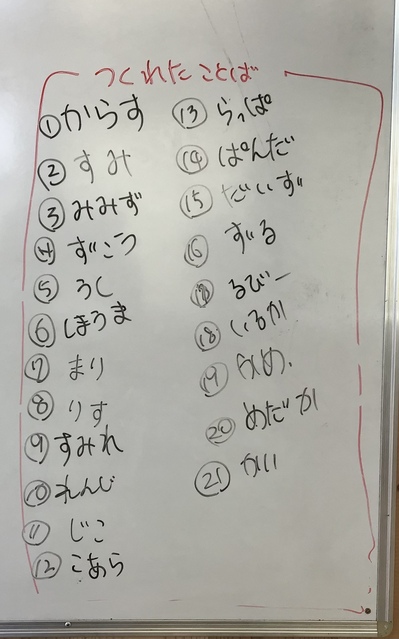 つくれたことば
①からす
②すみ
③みみず
④ずこう
⑤うし
⑥しまうま
⑦まり
⑧りす
⑨すみれ
⑩れんじ
⑪じこ
⑫こあら
⑬らっぱ
⑭ぱんだ
⑮だいず
⑯ずる
⑰るびー
⑱いるか
⑲かめ
⑳めだか
㉑かい